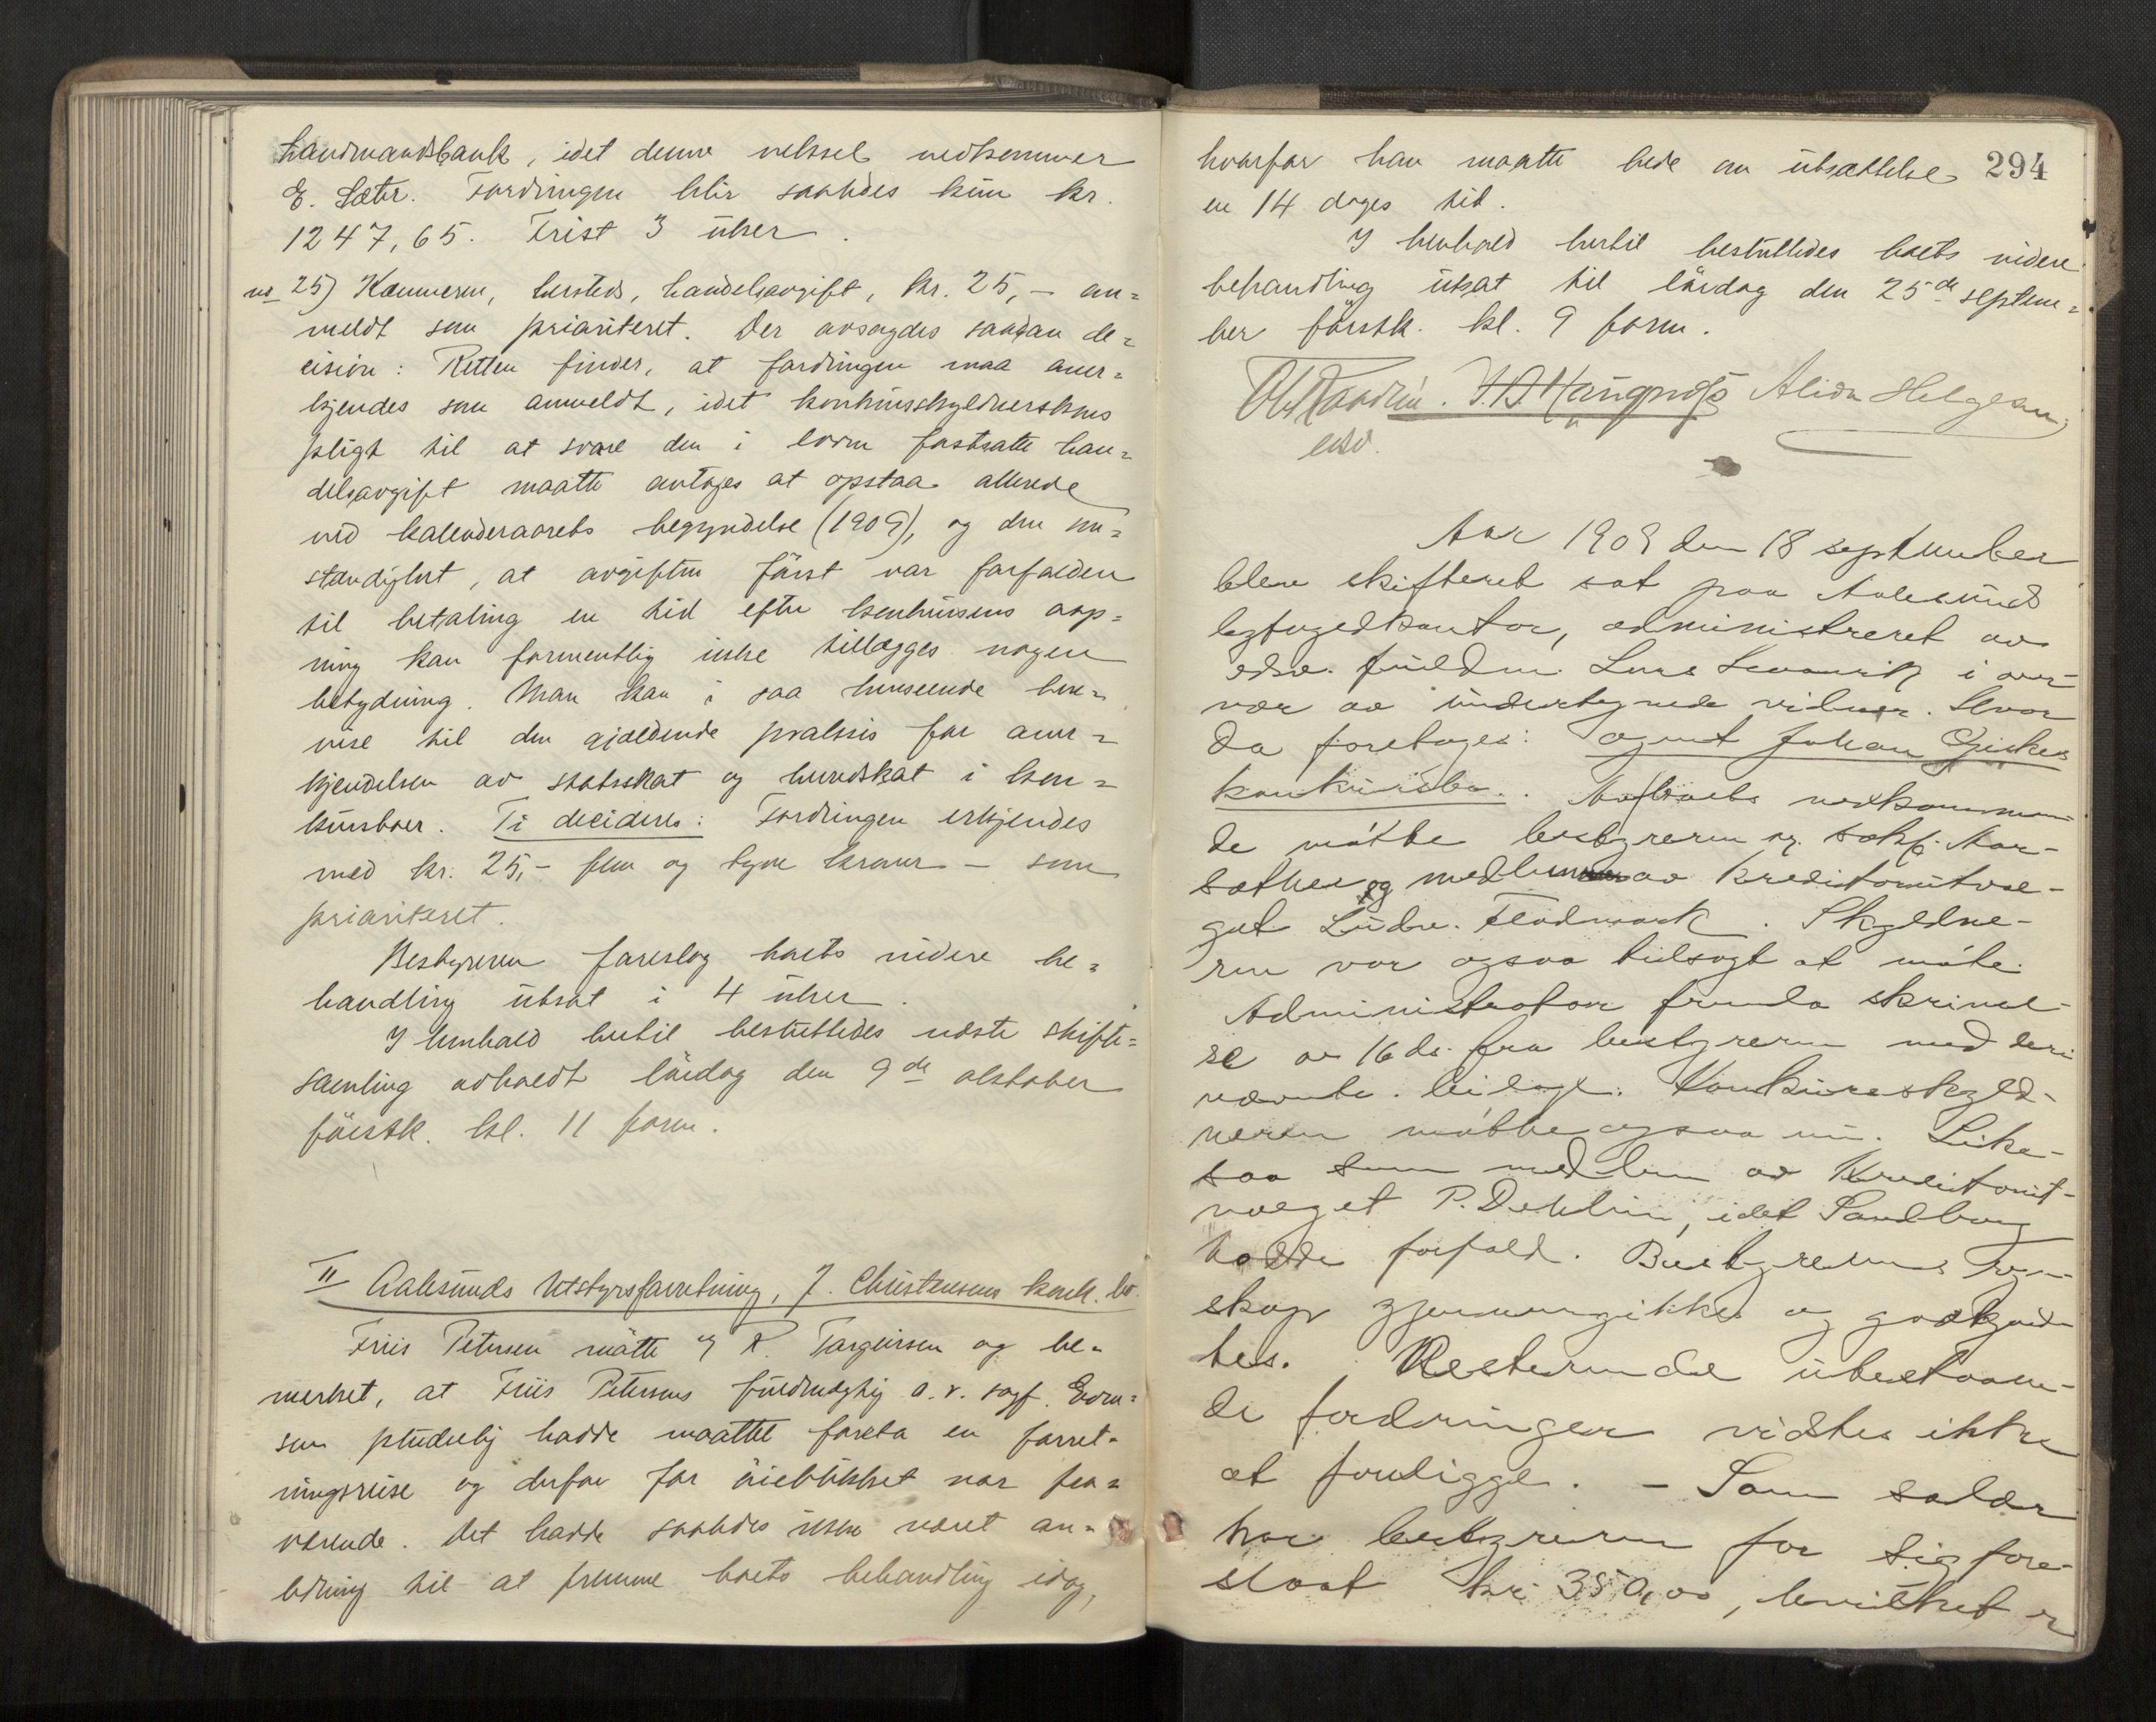 Landmandsbank, idet denne veksel vedkommer
E. Sæter. Fordringen blir saaledes kun kr.
1247,65. Frist 3 uker.
no 25) Kæmneren, hersteds, handelsavgift, kr. 25,- an=
meldt som prioriteret. Der avsagdes saadan de=
cision: Retten finder, at fordringen maa aner=
kjendes som anmeldt, idet konkursskyldnerskens
pligt til at svare den i loven fastsatte han=
delsavgift maatte antages at opstaa allerede
ved kalenderaarets begyndelse (1909), og den om=
stændighet, at avgiften først var forfalden
til betaling en tid efter konkursens aap=
ning kan formentlig ikke tillægges nogen
betydning. Man kan i saa henseende hen=
vise til den gjældende praksis for aner=
kjendelsen av statsskat og hundskat i kon=
kursboer. Ti decideres: Fordringen erkjendes
med kr. 25,- fem og tyve kroner - som
prioriteret.
Bestyreren foreslog boets videre be=
handling utsat i 4 uker.
I henhold hertil besluttedes næste skifte=
samling avholdt lørdag den 9de oktober
førstk. kl. 11 form.
II Aalesunds Utstyrsforretning, J. Christensens konk. bo.
Friis Petersen møtte ved R. Torgeirsen og be=
merket, at Friis Petersens fuldmægtig o.r. sagf. Even=
sen pludselig hadde maattet foreta en forret=
ningsreise og derfor for øieblikket var fra=
værende. Det hadde saaledes ikke været an=
ledning til at fremme boets behandling idag,
294
hvorfor han maatte bede om utsættelse
en 14 dages tid.
I henhold hertil besluttedes boets videre
behandling utsat til lørdag den 25de septem=
ber førstk. kl. 9 form.
Alida Helgesen
edsv.
Aar 1909 den 18 september
blev skifteret sat paa Aalesunds
byfogedkontor, administreret av
edsv. fuldm. Lars i over-
vær av undertegnede vidner. Hvor
da foretages: Agent Johan Giskes
konkursbo. Av boets vedkommen-
de møtte bestyreren or. sakf. Aar-
sæther og medlem av kreditorutval-
get Ludv. Flodmark. Skyldne-
ren var ogsaa tilsagt at møte.
Administrator fremla skrivel-
se av 16 ds. fra bestyreren med deri
nævnte bilage. Konkursskyld-
neren møtte ogsaa nu. Like-
saa som medlem av Kreditorut-
valget P. Dehlin, idet Sandborg
hadde forfald. Bestyrerens regn-
skap gjennemgikkes og godkjend-
tes. Resterende utestaaen-
de fordringer vistes ikke
at foreligge. - Som salær
har bestyreren for sig fore-
slaat kr. 350,00, hvilket er